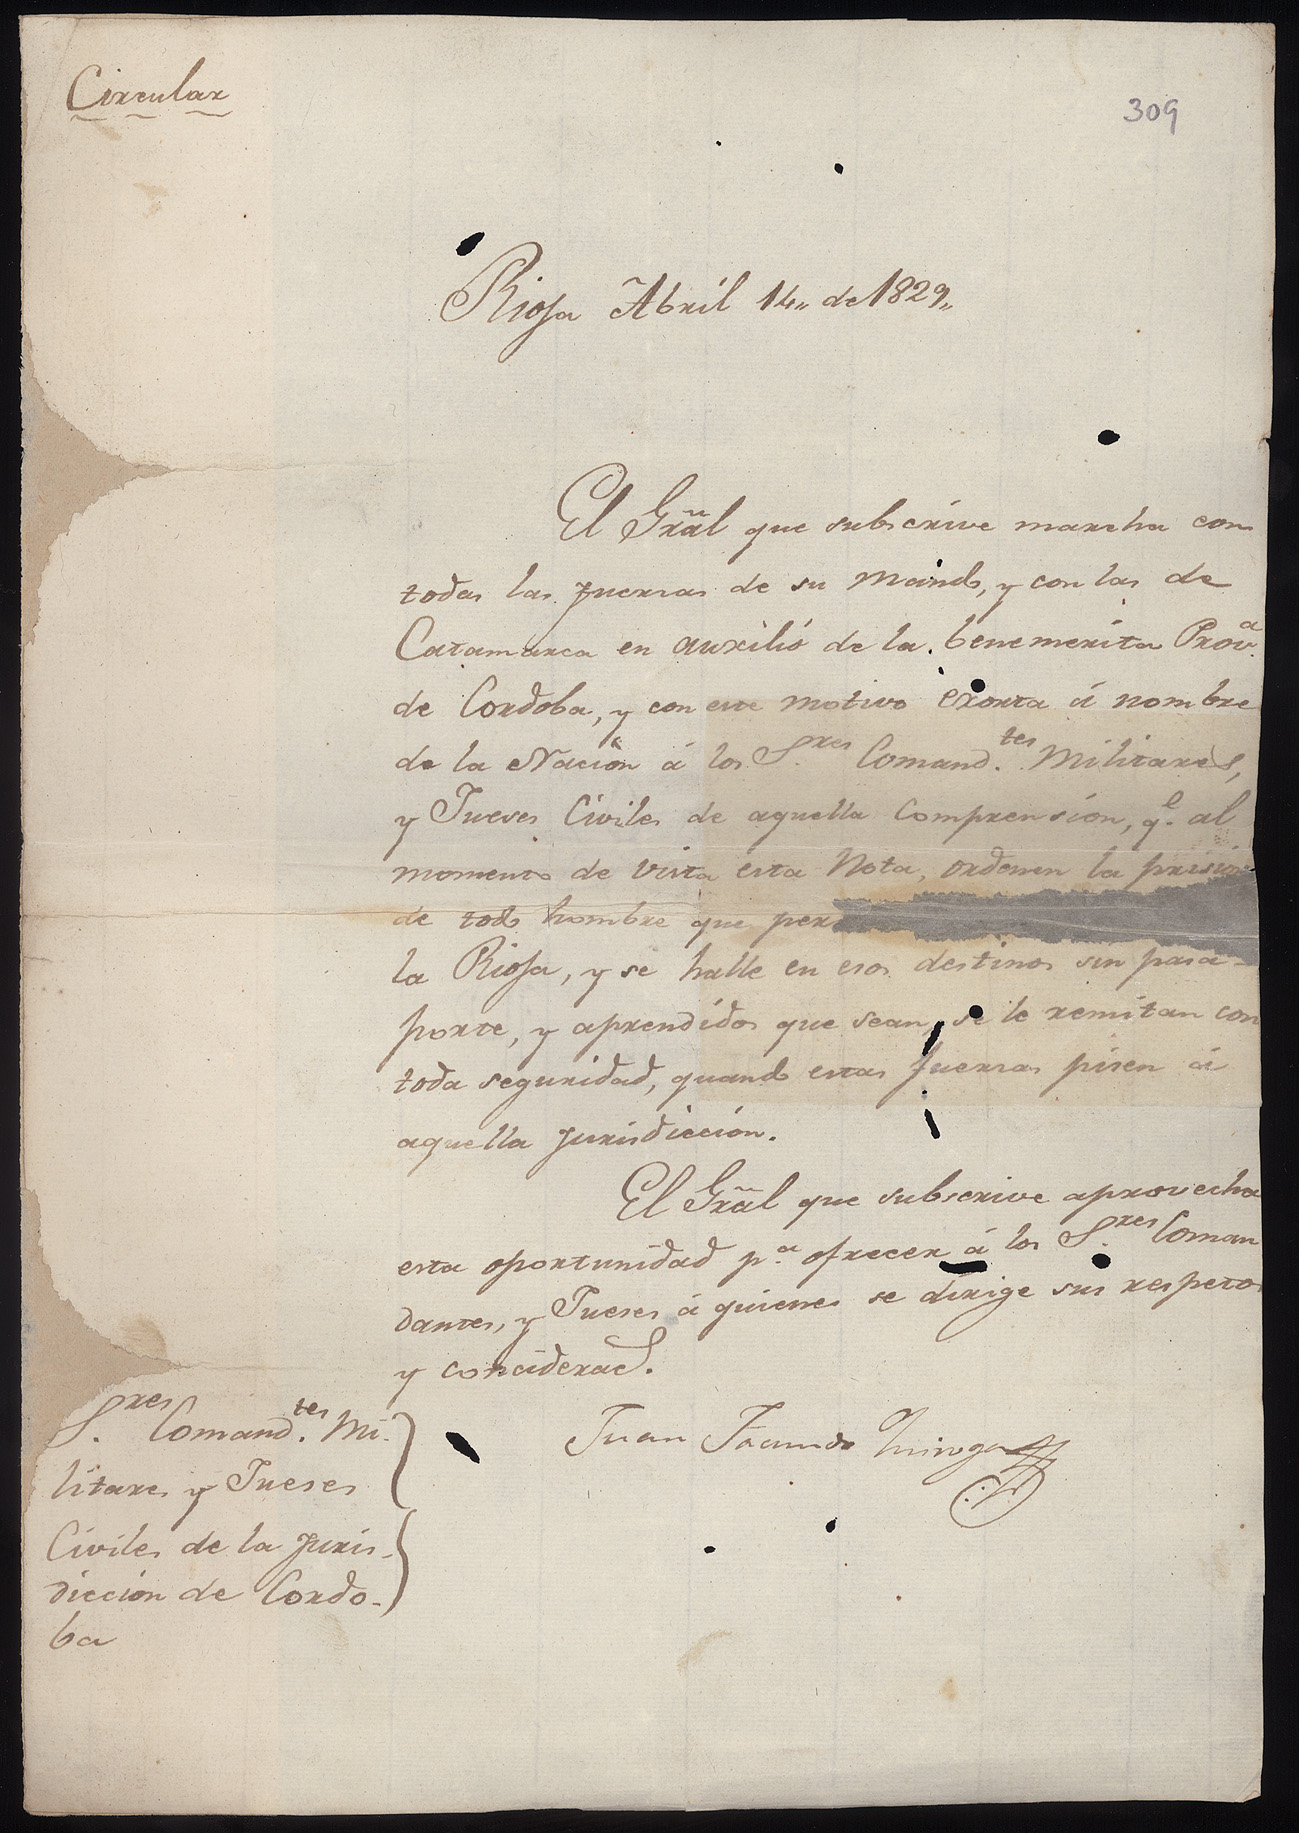 Circular
309
Rioja Abril 14,, de 1829,,
El Grãl que subscrive marcha con
todas las fuersas de su mando, y con las de
Catamarca en auxilio de la benemerita Prov.ª
de Cordoba, y con este motivo exorta á nombre
de la Nacion á los S.res Comand.tes Militares,
y Jueses Civiles de aquella Comprension, q.e al
momento de vista esta Nota, ordenen la prision
de todo hombre que per
la Rioja, y se halle en esos destinos sin pasa-
porte, y aprendidos que sean, se le remitan con
toda seguridad, quando estas fuersas pisen á
aquella jurisdiccion.
El Grãl que subscrive aprovecha
esta oportunidad p.a ofrecer á los S.res Coman
dantes, y Jueses á quienes se dirige sus respetos
y conciderac.s
Juan Facundo Quiroga
S.res Comand.tes Mi-
litares y Jueses
Civiles de la Juris-
diccion de Cordo-
ba